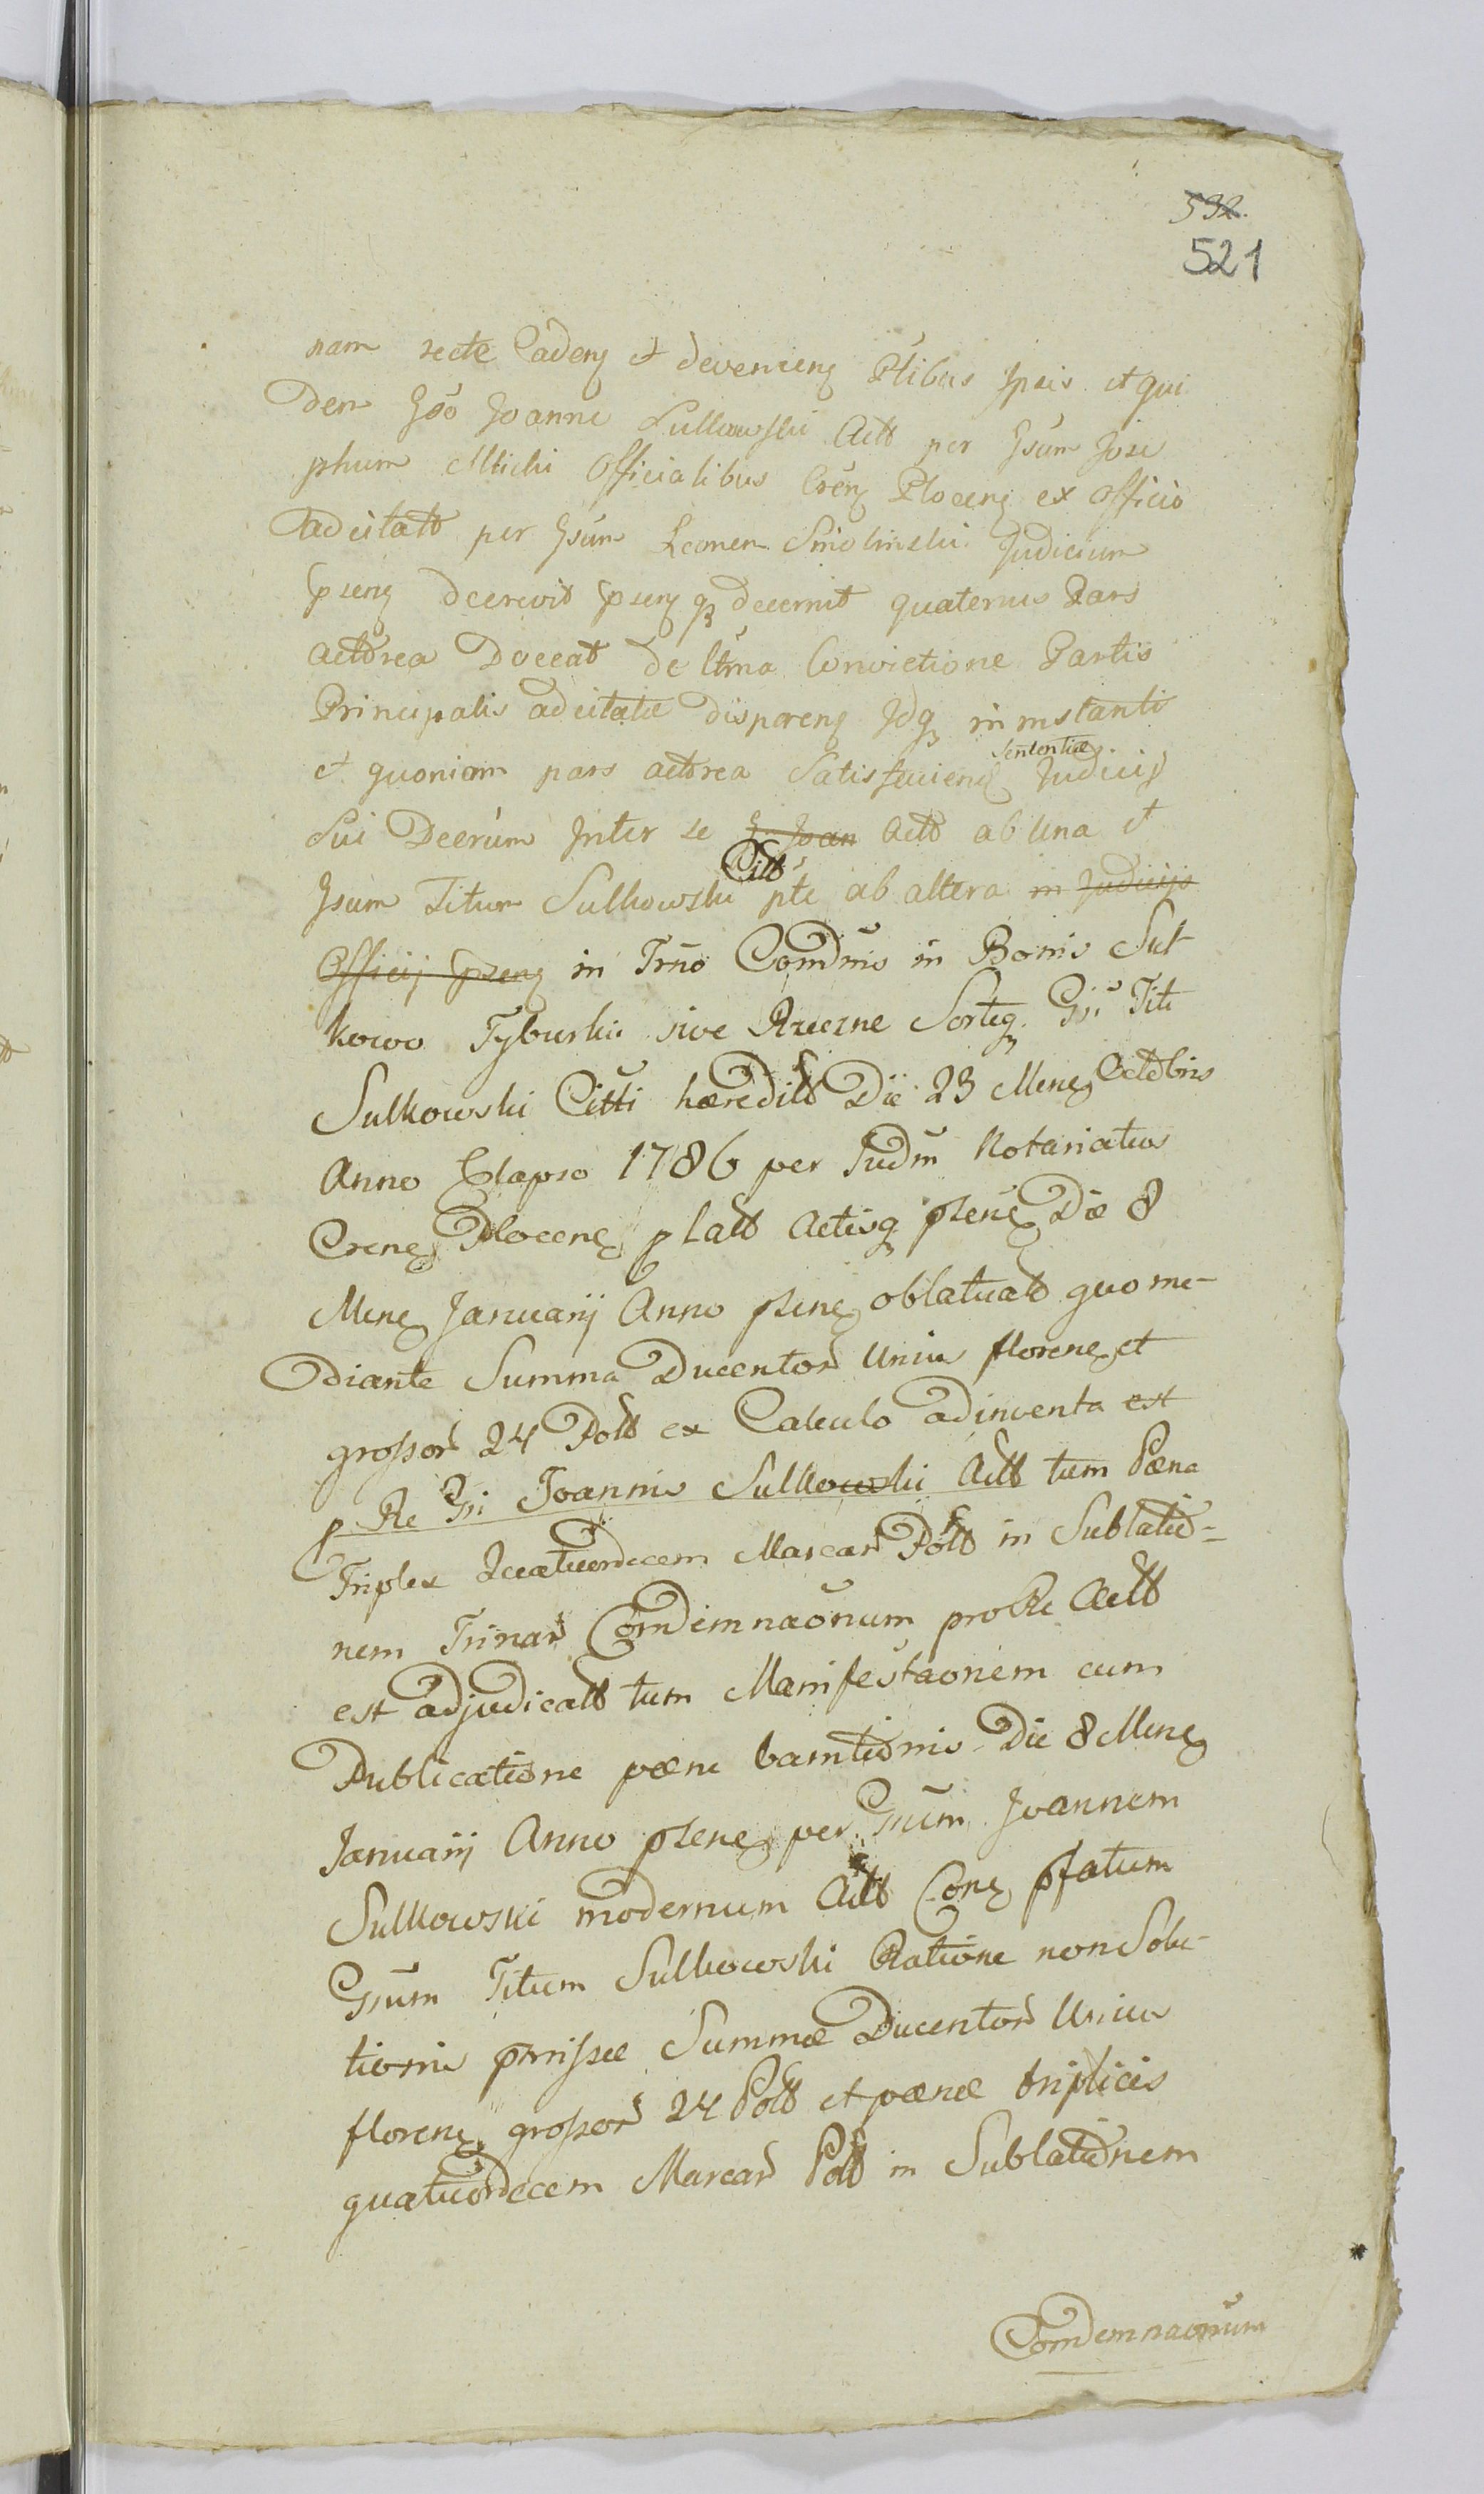 532.
521
nam recte Cadenę et devenienę Ptibus Ipsis et qui
dem Gso Joanne Sulkowski Actt per Gsum Jose
phum Milicki Officialibus Crenę Plocenę ex officio
adcitatt per Gsum Leonem Smolinski Judicium
psenę decrevit psenę qʒ decernit quatenus Pars
actorea Doceat de ltma Convictione Partis
Principalis adcitatæ disparenę Idqʒ in instanti
et quoniam pars actorea Satisfacienę Sententiæ Judicij
Sui Decrūm Inter se G. Joan Actt ab una et
Gsum Titum Sulkowski Citt pte ab altera in Judicijs
Officij psenę in Trno Comdmis in Bonis Sul
kowo Tyburki sive Rzeczne Sorteqʒ Gsi Titi
Sulkowski Citti hæreditt Die 23 Menę Octobris
Anno Elapso 1786 per Judm Notariatus
Crenę Plocenę p latt Actisqʒ psenę Die 8
Menę Januarij Anno psenę oblatuatt quo me-
diante Summa Ducentor Unius florenę et
grossor 24 Poltt ex Calculo adinventa est
p Re Gsi Joannis Sulkowski Actt tum Pæna
Triplex Quatuordecem Marcar Poltt in Sublatio=
nem Trinar Comdemnaonum pro Re Actt
est adjudicatt tum Manifestaonem cum
Publicatione pæne bannitionis Die 8 Menę
Januarij Anno psenę per Gsum Joannem
Sulkowski modernum Actt Conę pfatum
Gsum Titum Sulkowski Ratione non Solu-
tionis pmissæ Summæ Ducentor Unius
florenę grossor 24 Poltt et pænæ triplicis
quatuordecem Marcar Poltt in Sublationem
Comdemnaonum